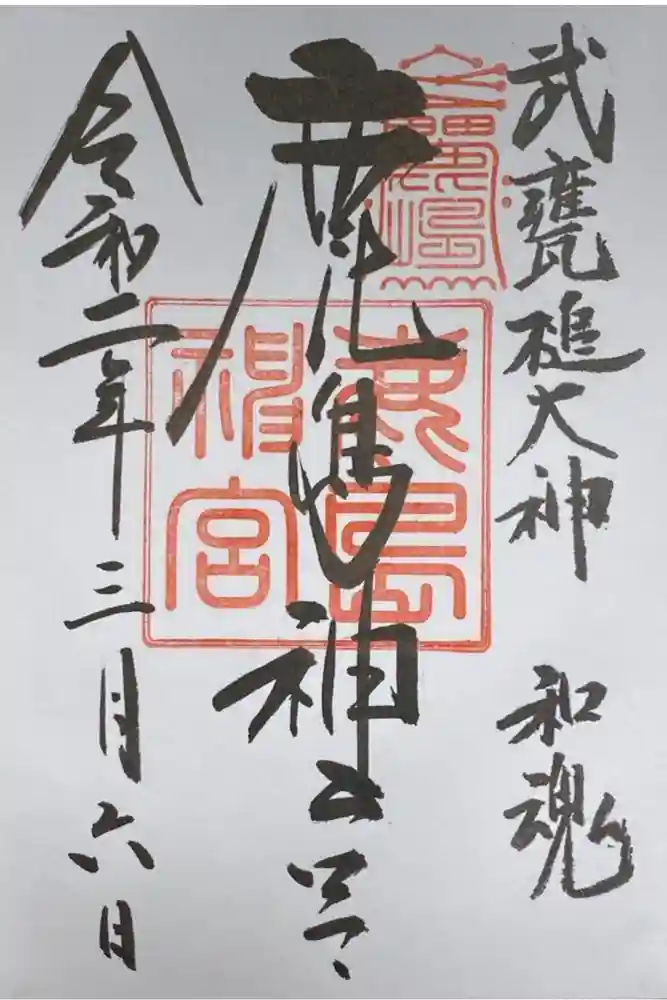 武甕槌大神　和魂
鹿島神宮
令和二年三月六日
鹿島
神宮